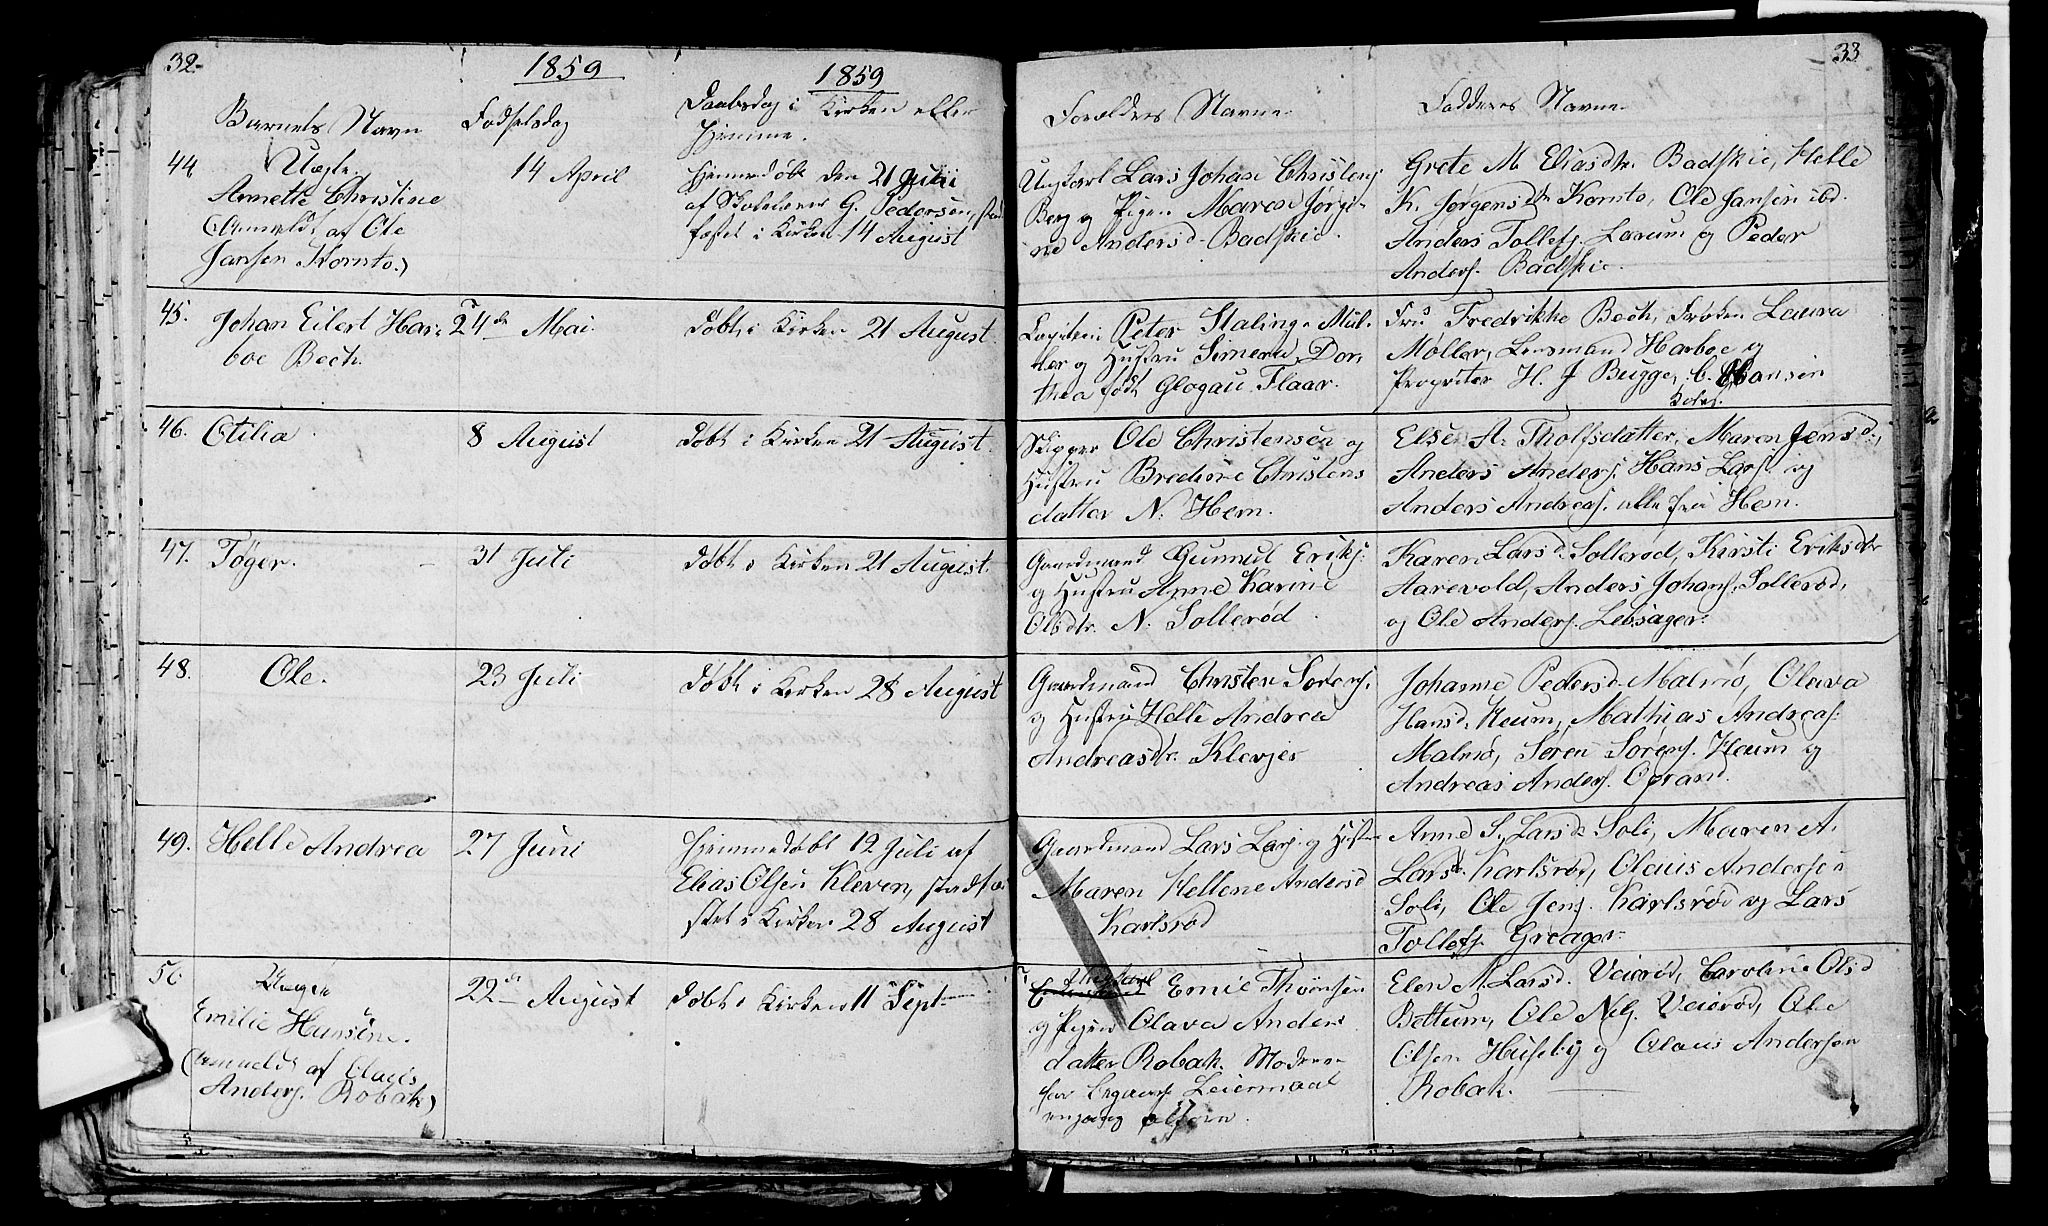 32.
1859
1859
Barnets Navn
Fødselsdag
Daabsdag i Kirken eller
Hjemme.
44
Uægte
Annette Christine
(Anmeldt af Ole
Jansen Kornto.)
14 April
Hjemmedøbt den 21 Juli
af Skolelærer G. Pedersen, stad
fæstet i Kirken 14 August
45.
Johan Eilert Har=
boe Bech.
24de Mai.
døbt i Kirken 21 August.
46.
Otilia
8 August
døbt i Kirken 21 August.
47.
Tøger.
31 Juli
døbt i Kirken 21 August.
48.
Ole.
23 Juli
døbt i Kirken 28 August
49.
Helle Andrea
27 Juni
Hjemmedøbt 19 Juli af
Elias Olsen Kleven, stadfæ
stet i Kirken 28 August
50
Uægte
Emilie Hansine.
(anmeldt af Olaus
Anders. Robak)
22de August
døbt i Kirken 11 Sept
33
Forældres Navne
Fadderes Navne
Ungkarl Lars Johan Christens.
Berg og Pigen Maren Jørgi-
ne Andersd. Badskie.
Grete M Eliasdtr. Badskie, Helle
K. Jørgensdtr Kornto, Ole Jansen ibd.
Anders Tollefs. Larum og Peder
Anders. Badskie.
Peter Staling Mul-
ler og Hustru Simene Dor,
thea født Glogau Flaar.
Fru Fredrikke Bech, Frøken Laura
Møller, Lensmand Harboe og
Propritær H. J Bugge, C. Hansen
Skipper Ole Christensen og
Hustru Bredine Christens
datter N. Hem.
Else A. Tholfsdatter, Maren Jensd.,
Anders Anders. Hans Lars. og
Anders Andreas. alle fra Hem.
Gaardmand Gunnul Eriks.
og Hustru Anne Karine
Olsdtr. N. Sollerød.
Karen Larsd. Sollerød, Kirsti Eriksdtr
Aarevold, Anders Johans. Sollerød,
og Ole Anders. Lebsager.
Gaardmand Christen Sørens.
og Hustru Helle Andrea
Andreasdtr. Klevjer
Johanne Pedersd. Malmø, Olava
Hansd. Heum, Mathias Andreas.
Malmø, Søren Sørens. Heum og
Andreas Anders. Oprand.
Gaardmand Lars Lars. og Hustru
Maren Hellene Andersd
Karlsrød
Anne S. Larsd. Soli, Maren A.
Larsd. Karlsrød, Olaus Andersen
Soli, Ole Jens. Karlsrød og Lars
Tollefs. Greager.
Ungkarl Emil Thomsen
og Pigen Olava Anders
datter Robak. Moderen
har begaaet Leiermaal
engang aforn.
Elen N. Larsd. Veierød, Caroline Olsd
Bettum, Ole Nils. Veierød, Ole
Olsen Huseby og Olaus Andersen
Robak.